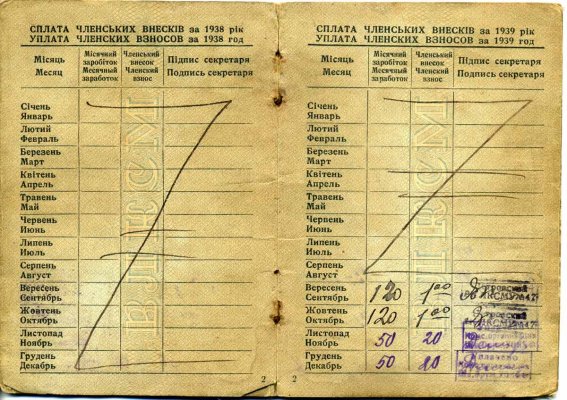 СПЛАТА ЧЛЕНСЬКИХ ВНЕСКІВ за 1938 рік
УПЛАТА ЧЛЕНСКИХ ВЗНОСОВ за 1938 год
Місяць
Месяц
Місячний
заробіток
Месячный
заработок
Членський
внесок
Членский
взнос
Підпис секретаря
Подпись секретаря
Січень
Январь
Лютий
Февраль
Березень
Март
Квітень
Апрель
Травень
Май
Червень
Июнь
Липень
Июль
Серпень
Август
Вересень
Сентябрь
Жовтень
Октябрь
Листопад
Ноябрь
Грудень
Декабрь
ВЛКСМ
2
СПЛАТА ЧЛЕНСЬКИХ ВНЕСКІВ за 1939 рік
УПЛАТА ЧЛЕНСКИХ ВЗНОСОВ за 1939 год
Місяць
Месяц
Місячний
заробіток
Месячный
заработок
Членський
внесок
Членский
взнос
Підпис секретаря
Подпись секретаря
Січень
Январь
Лютий
Февраль
Березень
Март
Квітень
Апрель
Травень
Май
Червень
Июнь
Липень
Июль
Серпень
Август
Вересень
Сентябрь 120 1 00
Жовтень
Октябрь 120 1 00
Листопад
Ноябрь 50 20
Грудень
Декабрь 50 20
ВЛКСМ
2